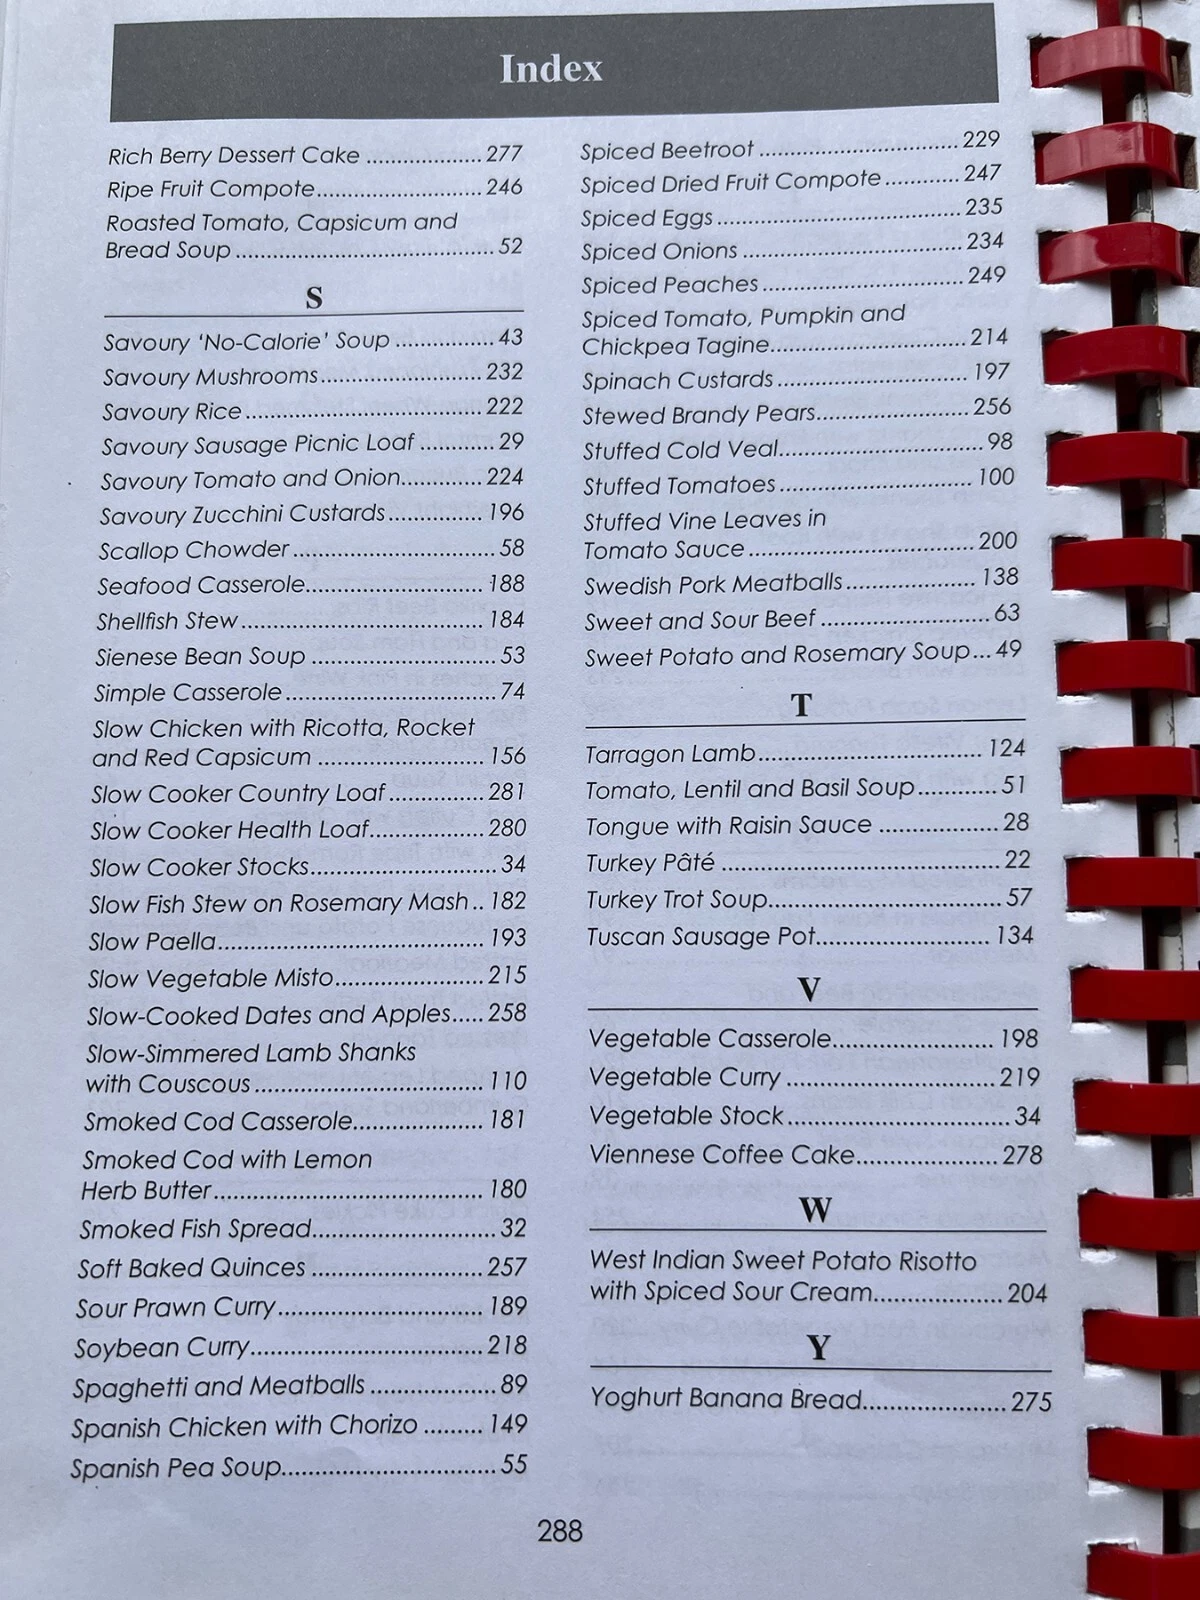 Index
Rich Berry Dessert Cake ................... 277
Ripe Fruit Compote........................... 246
Roasted Tomato, Capsicum and
Bread Soup .......................................... 52
S
Savoury ‘No-Calorie’ Soup ................ 43
Savoury Mushrooms........................... 232
Savoury Rice ....................................... 222
Savoury Sausage Picnic Loaf ............. 29
Savoury Tomato and Onion............. 224
Savoury Zucchini Custards ............... 196
Scallop Chowder ................................ 58
Seafood Casserole............................. 188
Shellfish Stew ........................................ 184
Sienese Bean Soup .............................. 53
Simple Casserole .................................. 74
Slow Chicken with Ricotta, Rocket
and Red Capsicum ........................... 156
Slow Cooker Country Loaf ............... 281
Slow Cooker Health Loaf.................. 280
Slow Cooker Stocks.............................. 34
Slow Fish Stew on Rosemary Mash.. 182
Slow Paella........................................... 193
Slow Vegetable Misto........................ 215
Slow-Cooked Dates and Apples..... 258
Slow-Simmered Lamb Shanks
with Couscous ..................................... 110
Smoked Cod Casserole..................... 181
Smoked Cod with Lemon
Herb Butter........................................... 180
Smoked Fish Spread............................. 32
Soft Baked Quinces ........................... 257
Sour Prawn Curry ................................ 189
Soybean Curry..................................... 218
Spaghetti and Meatballs ................... 89
Spanish Chicken with Chorizo ......... 149
Spanish Pea Soup................................. 55
Spiced Beetroot ................................. 229
Spiced Dried Fruit Compote ........... 247
Spiced Eggs ........................................ 235
Spiced Onions .................................... 234
Spiced Peaches ................................. 249
Spiced Tomato, Pumpkin and
Chickpea Tagine................................ 214
Spinach Custards ............................... 197
Stewed Brandy Pears......................... 256
Stuffed Cold Veal................................. 98
Stuffed Tomatoes ............................... 100
Stuffed Vine Leaves in
Tomato Sauce .................................... 200
Swedish Pork Meatballs ..................... 138
Sweet and Sour Beef .......................... 63
Sweet Potato and Rosemary Soup... 49
T
Tarragon Lamb.................................... 124
Tomato, Lentil and Basil Soup............. 51
Tongue with Raisin Sauce ................... 28
Turkey Pâté ........................................... 22
Turkey Trot Soup................................... 57
Tuscan Sausage Pot........................... 134
V
Vegetable Casserole......................... 198
Vegetable Curry ................................ 219
Vegetable Stock .................................. 34
Viennese Coffee Cake...................... 278
W
West Indian Sweet Potato Risotto
with Spiced Sour Cream.................... 204
Y
Yoghurt Banana Bread...................... 275
288